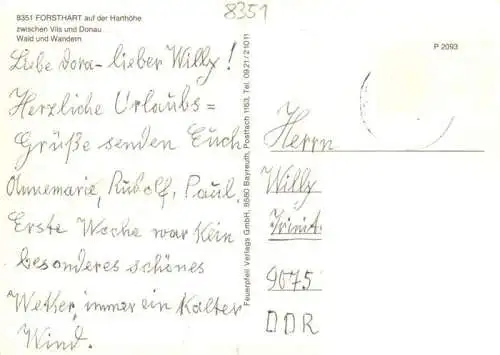 8351
8351 FORSTHART auf der Harthöhe
zwischen Vils und Donau
Wald und Wandern
P 2093
Liebe Dora - lieber Willy!
Herzliche Urlaubs=
Grüße senden Euch
Annemarie, Rudolf, Paul.
Erste Woche war kein
besonderes schönes
Wetter, immer ein kalter
Wind.
Feuerpfeil Verlags GmbH, 8580 Bayreuth, Postfach 1163, Tel. 0921/21011
Herrn
Willy
9075
DDR